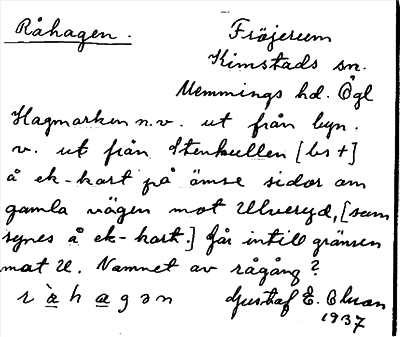 Råhagen.
Fröjerum
Kimstads sn.
Memmings hd. Ögl
Hagmarken n.v. ut från byn.
v. ut från Stenkullen [bs +]
å ek-kart på ömse sidor om
gamla vägen mot Ulveryd, [som
synes å ek-kart.] går intill gränsen
mot U. Namnet av rågång?
r à h a g ə n
Gustaf E. Olsson
1937